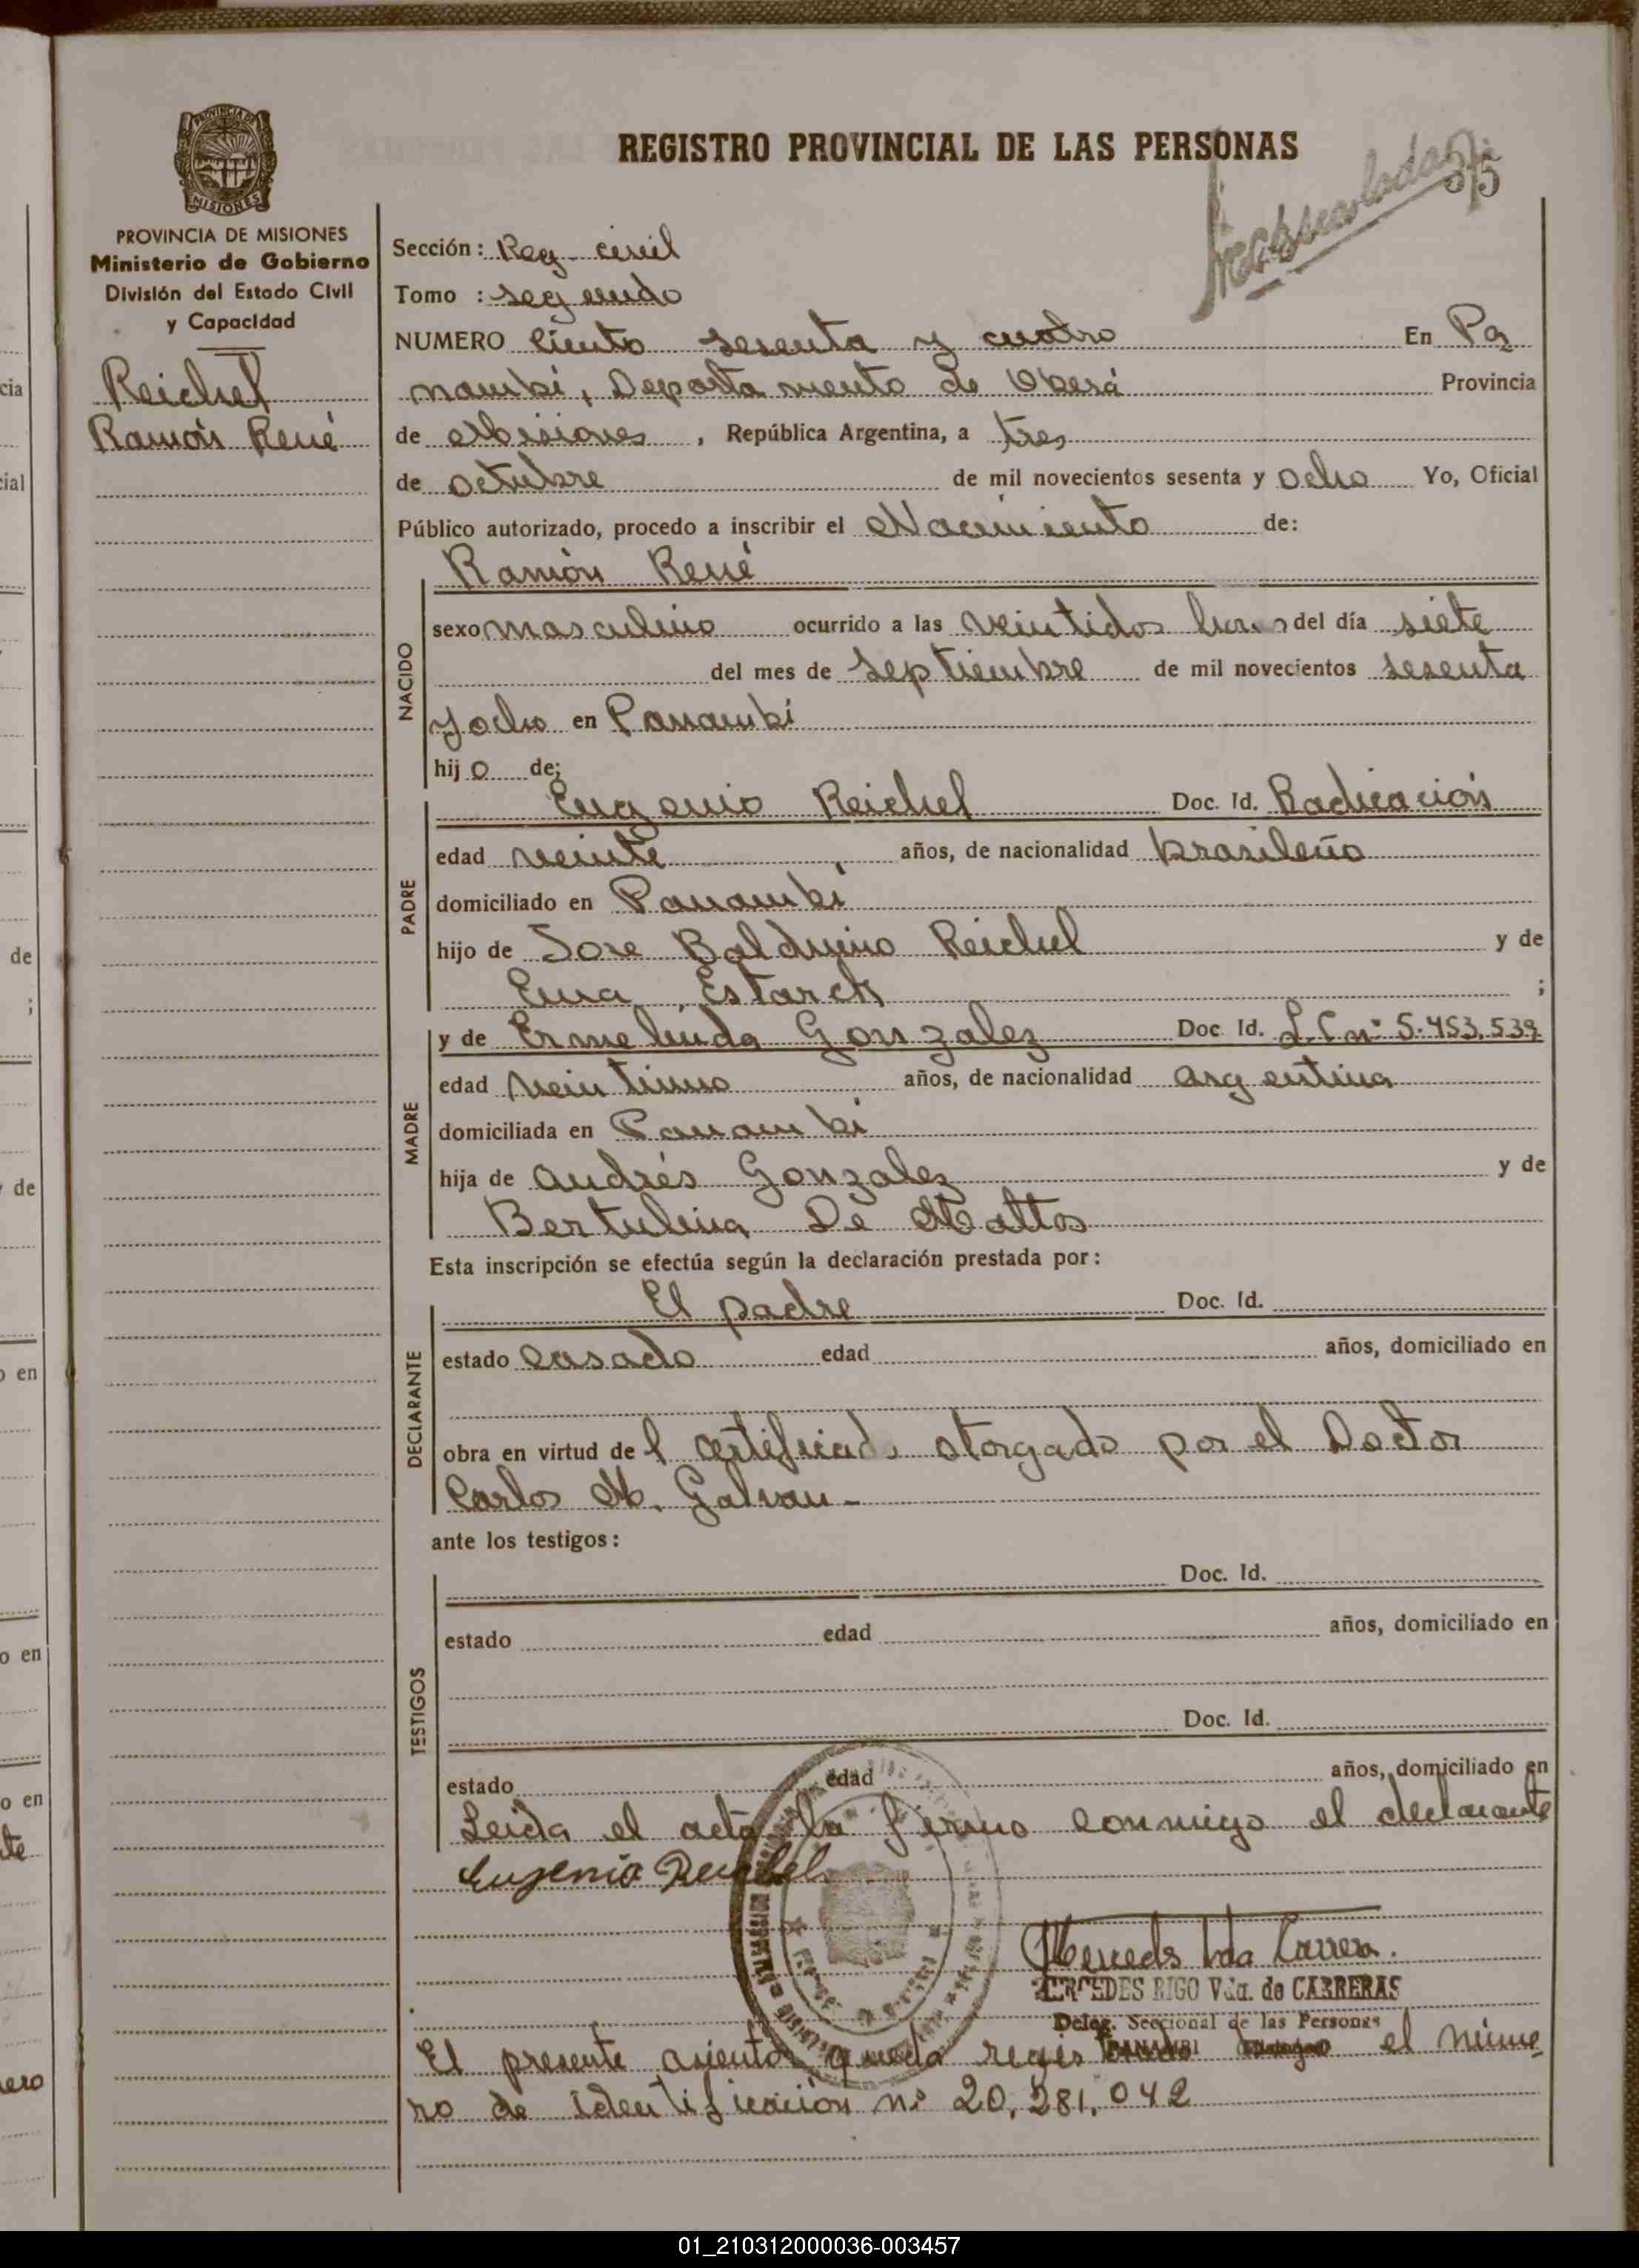 REGISTRO PROVINCIAL DE LAS PERSONAS
375
PROVINCIA DE MISIONES
MISIONES
PROVINCIA DE MISIONES
Ministerio de Gobierno
División del Estado Civil
y Capacidad
Reichel
Ramón René
Sección: Reg. civil
Tomo : segundo
NUMERO Ciento sesenta y cuatro En Pa
nambí, Departamento de Oberá Provincia
de Misiones, República Argentina, a tres
de octubre de mil novecientos sesenta y ocho Yo, Oficial
Público autorizado, procedo a inscribir el Nacimiento de:
Ramón René
NACIDO
sexo masculino ocurrido a las veintidos horas del día siete
del mes de septiembre de mil novecientos sesenta
y ocho en Panambí
hijo de:
PADRE
Eugenio Reichel Doc. Id. Radicación
edad veinte años, de nacionalidad brasileño
domiciliado en Panambí
hijo de Jose Balduino Reichel y de
Ema Estarch ;
MADRE
y de Ermelinda Gonzalez Doc. Id. L.C nº 5.453.539
edad veintiuno años, de nacionalidad argentina
domiciliada en Panambí
hija de Andrés Gonzalez y de
Bertulina De Mattos
Esta inscripción se efectúa según la declaración prestada por:
DECLARANTE
El padre Doc. Id.
estado Casado edad años, domiciliado en
obra en virtud de l certificado otorgado por el Doctor
Carlos M. Galvan-
ante los testigos:
TESTIGOS
Doc. Id.
estado edad años, domiciliado en
Doc. Id.
estado edad años, domiciliado en
Leida el acta la firma conmigo el declarante
Eugenio Reichel
MERCEDES RIGO Vda. de CARRERAS
Deleg. Seccional de las Personas
PANAMBI
El presente asiento queda registrado el núme
ro de identificación nº 20.281.042
01_210312000036-003457